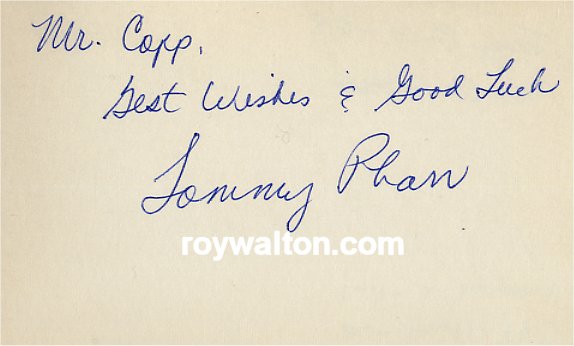 Mr. Copp,
Best Wishes & Good Luck
Tommy Pharr
roywalton.com